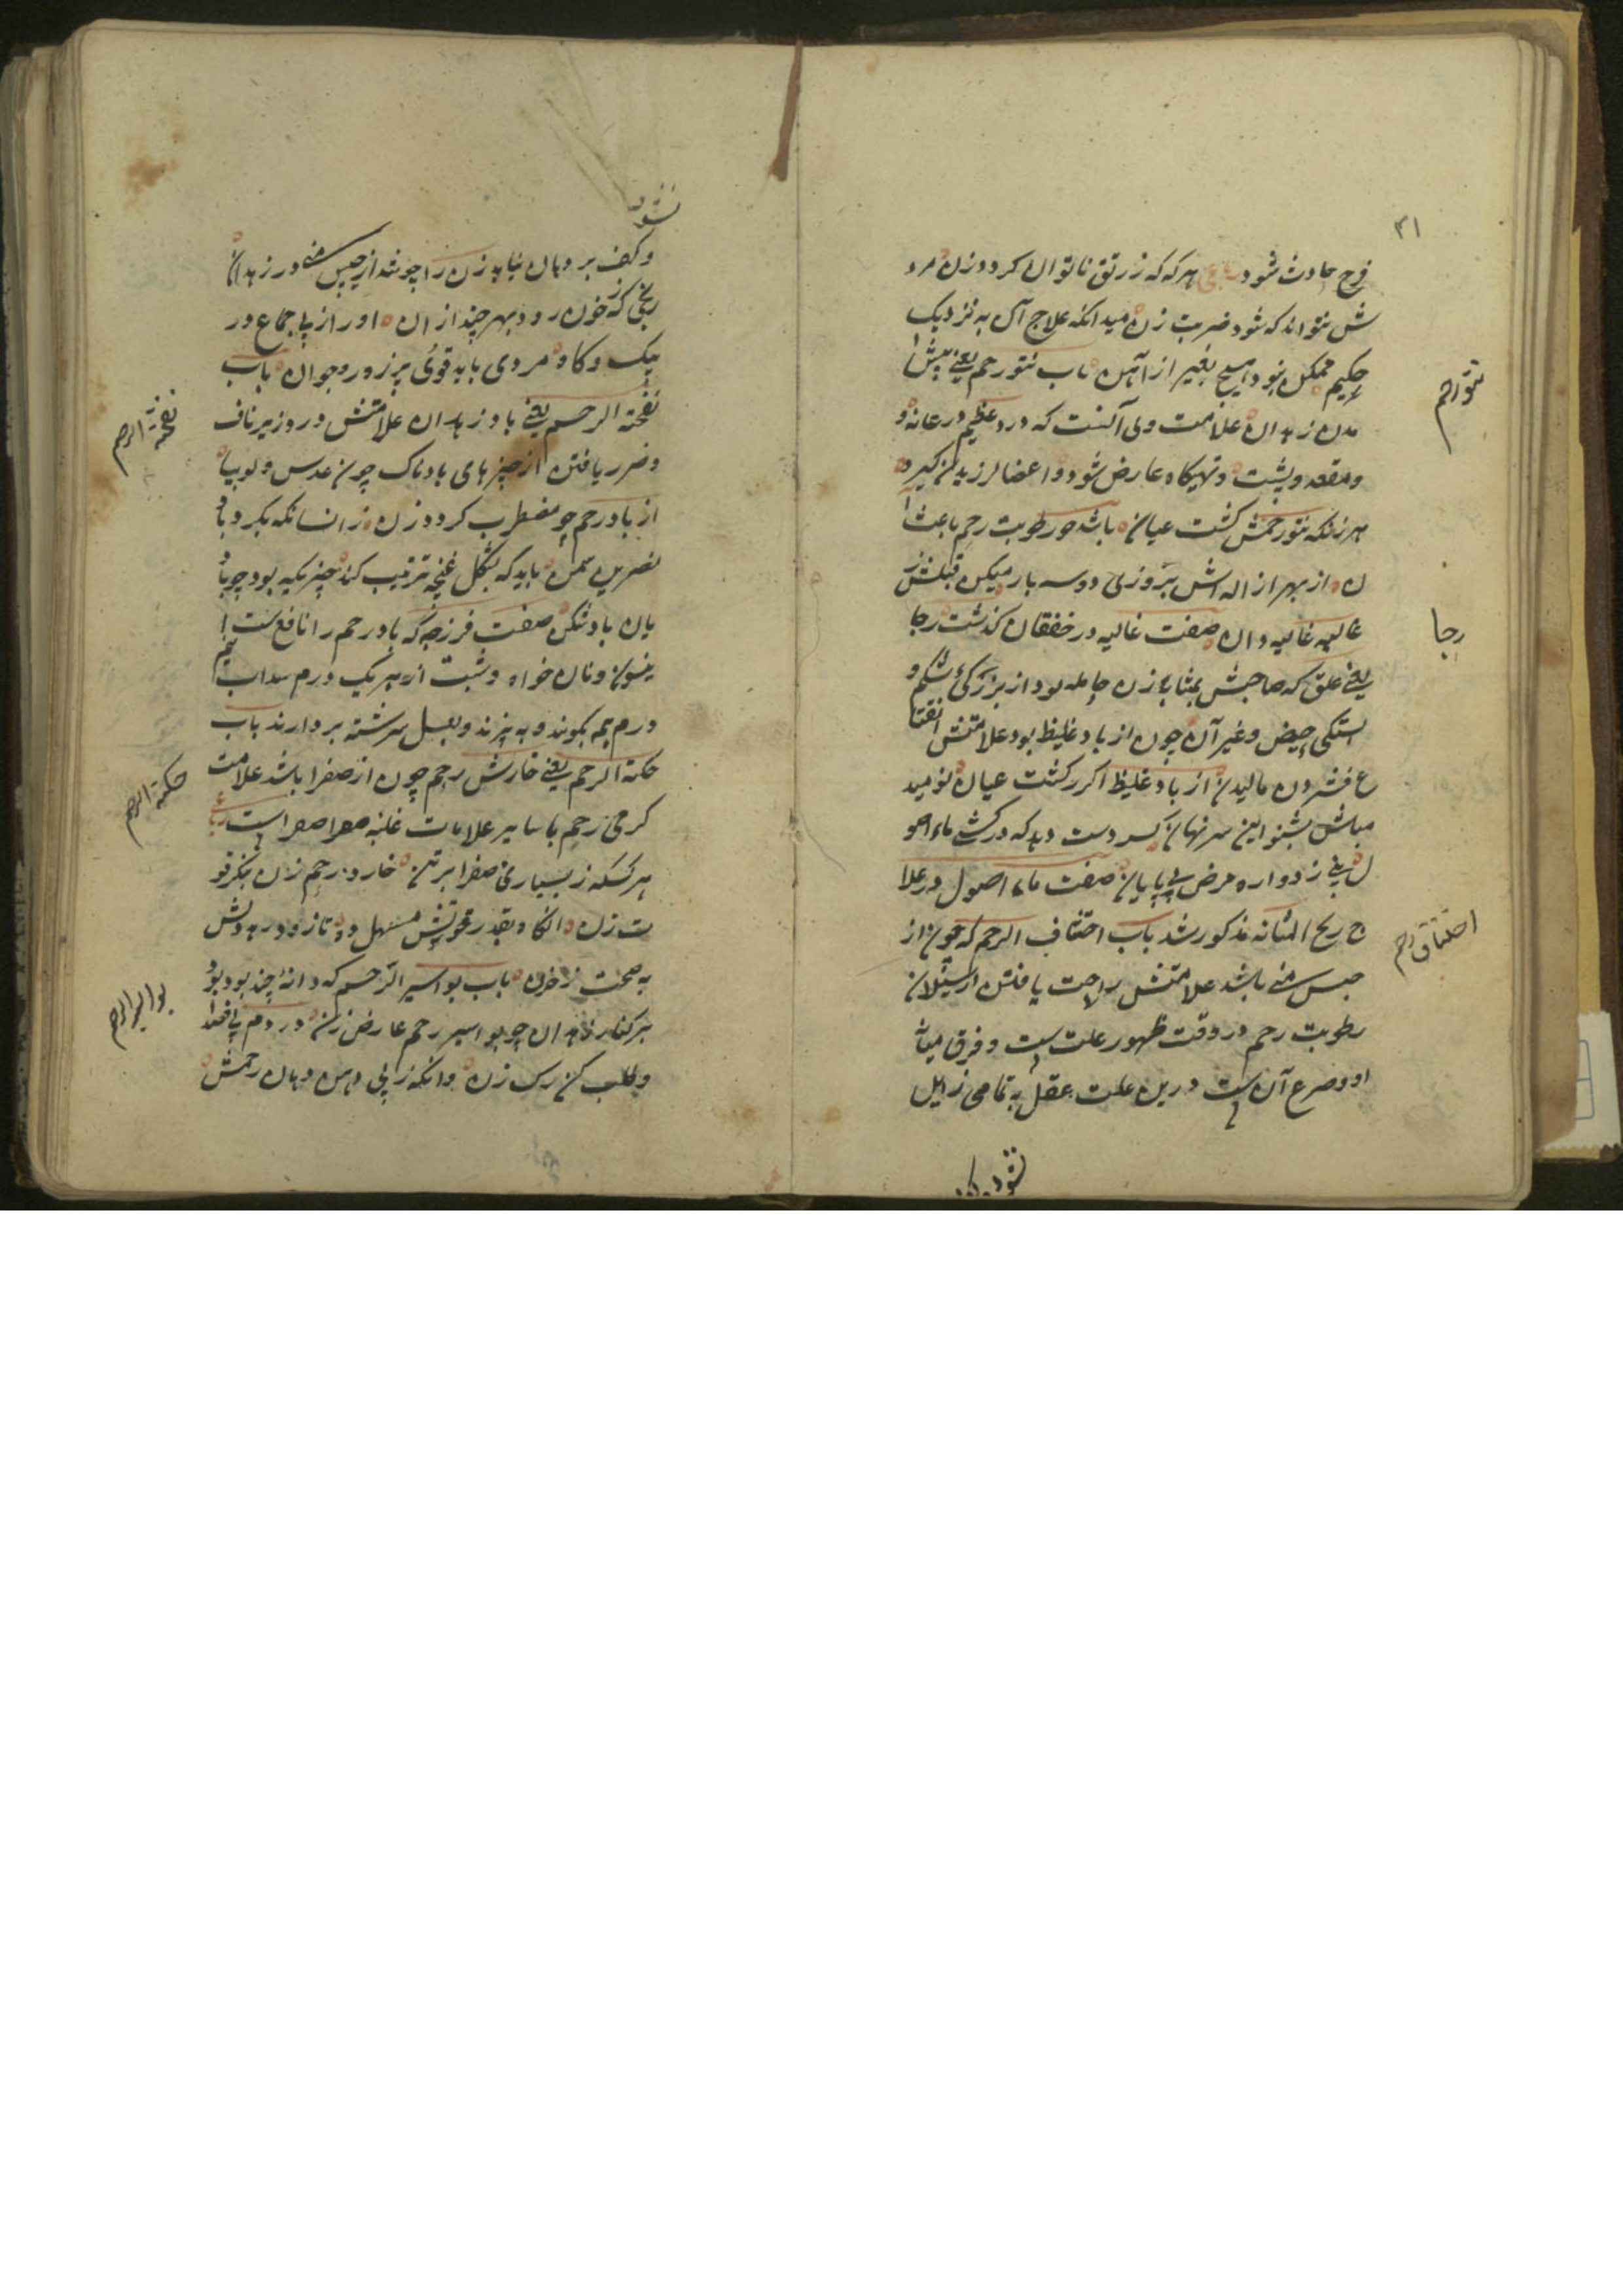 ۳۱
فرج حادث شود رباعی هر که که ز رتق ناتوان کردد زن مرد
ش نتواند که شود ضربت زن میدانکه علاج آن به نزدیک
حکیم ممکن نبود هیچ بغیر از آهن باب نتو رحم یعنی پیش آ
مدن زهدان علامت وی آنست که درد عظیم در عانه و
ومقعد وپشت و تهیکاه عارض شود و اعضا لرزیدن کیرد
هر زنکه نتو رحمش کشت عیان باشد چو رطوبت رحم باعث آ
ن از بهر ازاله اش بروزی دو سه بار میکن قبلش ز
غالیه غالیه دان صفت غالیه در خفقان کذشت رجا
یعنی علتی که صاحبش بمثابه زن حامله بود از بزرکی شکم و
بستکی حیض وغیر آن چون از باد غلیظ بود علامتش انتفا
ع فشردن مالیدن از باد غلیظ اکر رکشت عیان نومید
مباش بشنو این سر نهان کسر دست دهد که در کشی ماء اصو
ل زدواره مرض بی پایان صفت ماء اصول در علا
ج ریح المثانه مذکور شد باب اختناق الرحم که چون از
حبس منی باشد علامتش راحت یافتن از سیلان
رطوبت رحم در وقت ظهور علت ست و فرق میان
او وصرع آن ست درین علت عقل بتمامی زایل
نتو رحم
رجا
اختناق رحم
نشود
وکف بر دهان نیاید زن را چو شد از حبس منی در زهدان
رنجی که خون رود بهر چند از آن او را ز پا جماع در
یک دو کاه مردی باید قوی پر زور و جوان باب
نفخة الرحم یعنی باد زهدان علامتش درد زیر ناف
وضرر یافتن از چیز های بادناک چون عدس ولوبیا
از باد رحم چو مضطرب کردد زن زانسانکه بکرد با
نصرین سمن باید که بشکل غنچه ترتیب کند چیزیکه بود چو با
یان باد شکن صفت فرزجه که باد رحم را نافع ست ا
نیسون ونان خواه وشبت از هر یک درم سداب نیم
درم همه بکوبند و به پزند وبعسل سرشته بردارند باب
حکة الرحم یعنی خارش رحم چون از صفرا باشد علامت
کرمی رحم با سایر علامات غلبه صفرا ست رباعی
هر کسکه ز بسیاری صفرا بر تن خارد رحم زن بنکر قو
ت زن آنکاه بقدر قوتش مسهل ده تا زود رهد ش
به صحت زخزن باب بواسیر الرحم که دانه چند بود بو
بر کنار زهدان چو بواسیر رحم عارض زن در دم
وطلب کن رک زن وانکه ز پی دهن دهان رحمش
نفخة الرحم
حکة الرحم
بواسیر الرحم